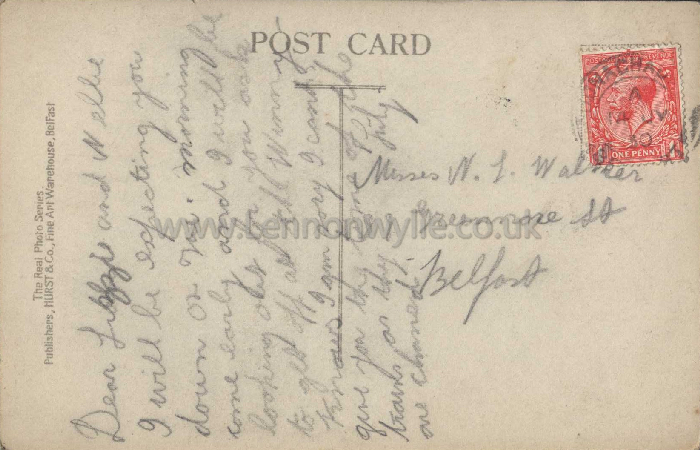 POST CARD
The Real Photo Series
Publishers, HURST & Co., Fine Art Warehouse, Belfast
Dear Lizzie and Nellie
I will be expecting you
down on morning
come early and I will be
looking out for you ask
to get off at Mill
knows I am sorry I cannot
give you the time of the
trains as they July
are changed
Misses N. L. Walker
St
Belfast
ONE PENNY
www.bennonwylie.co.uk